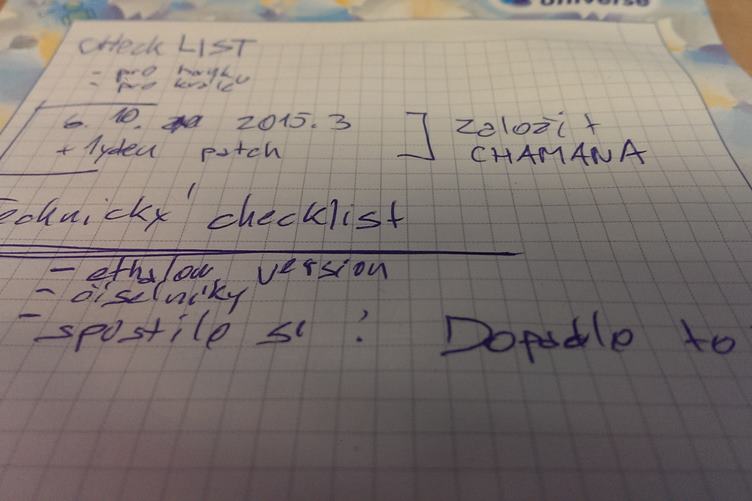 Universe
CHECK LIST
- pro
- pro
6. 10. 2015.3 založit
+ 1 týden patch CHAMANA
echnický checklist
- version
- číselníky
- spustilo si : Dopadlo to